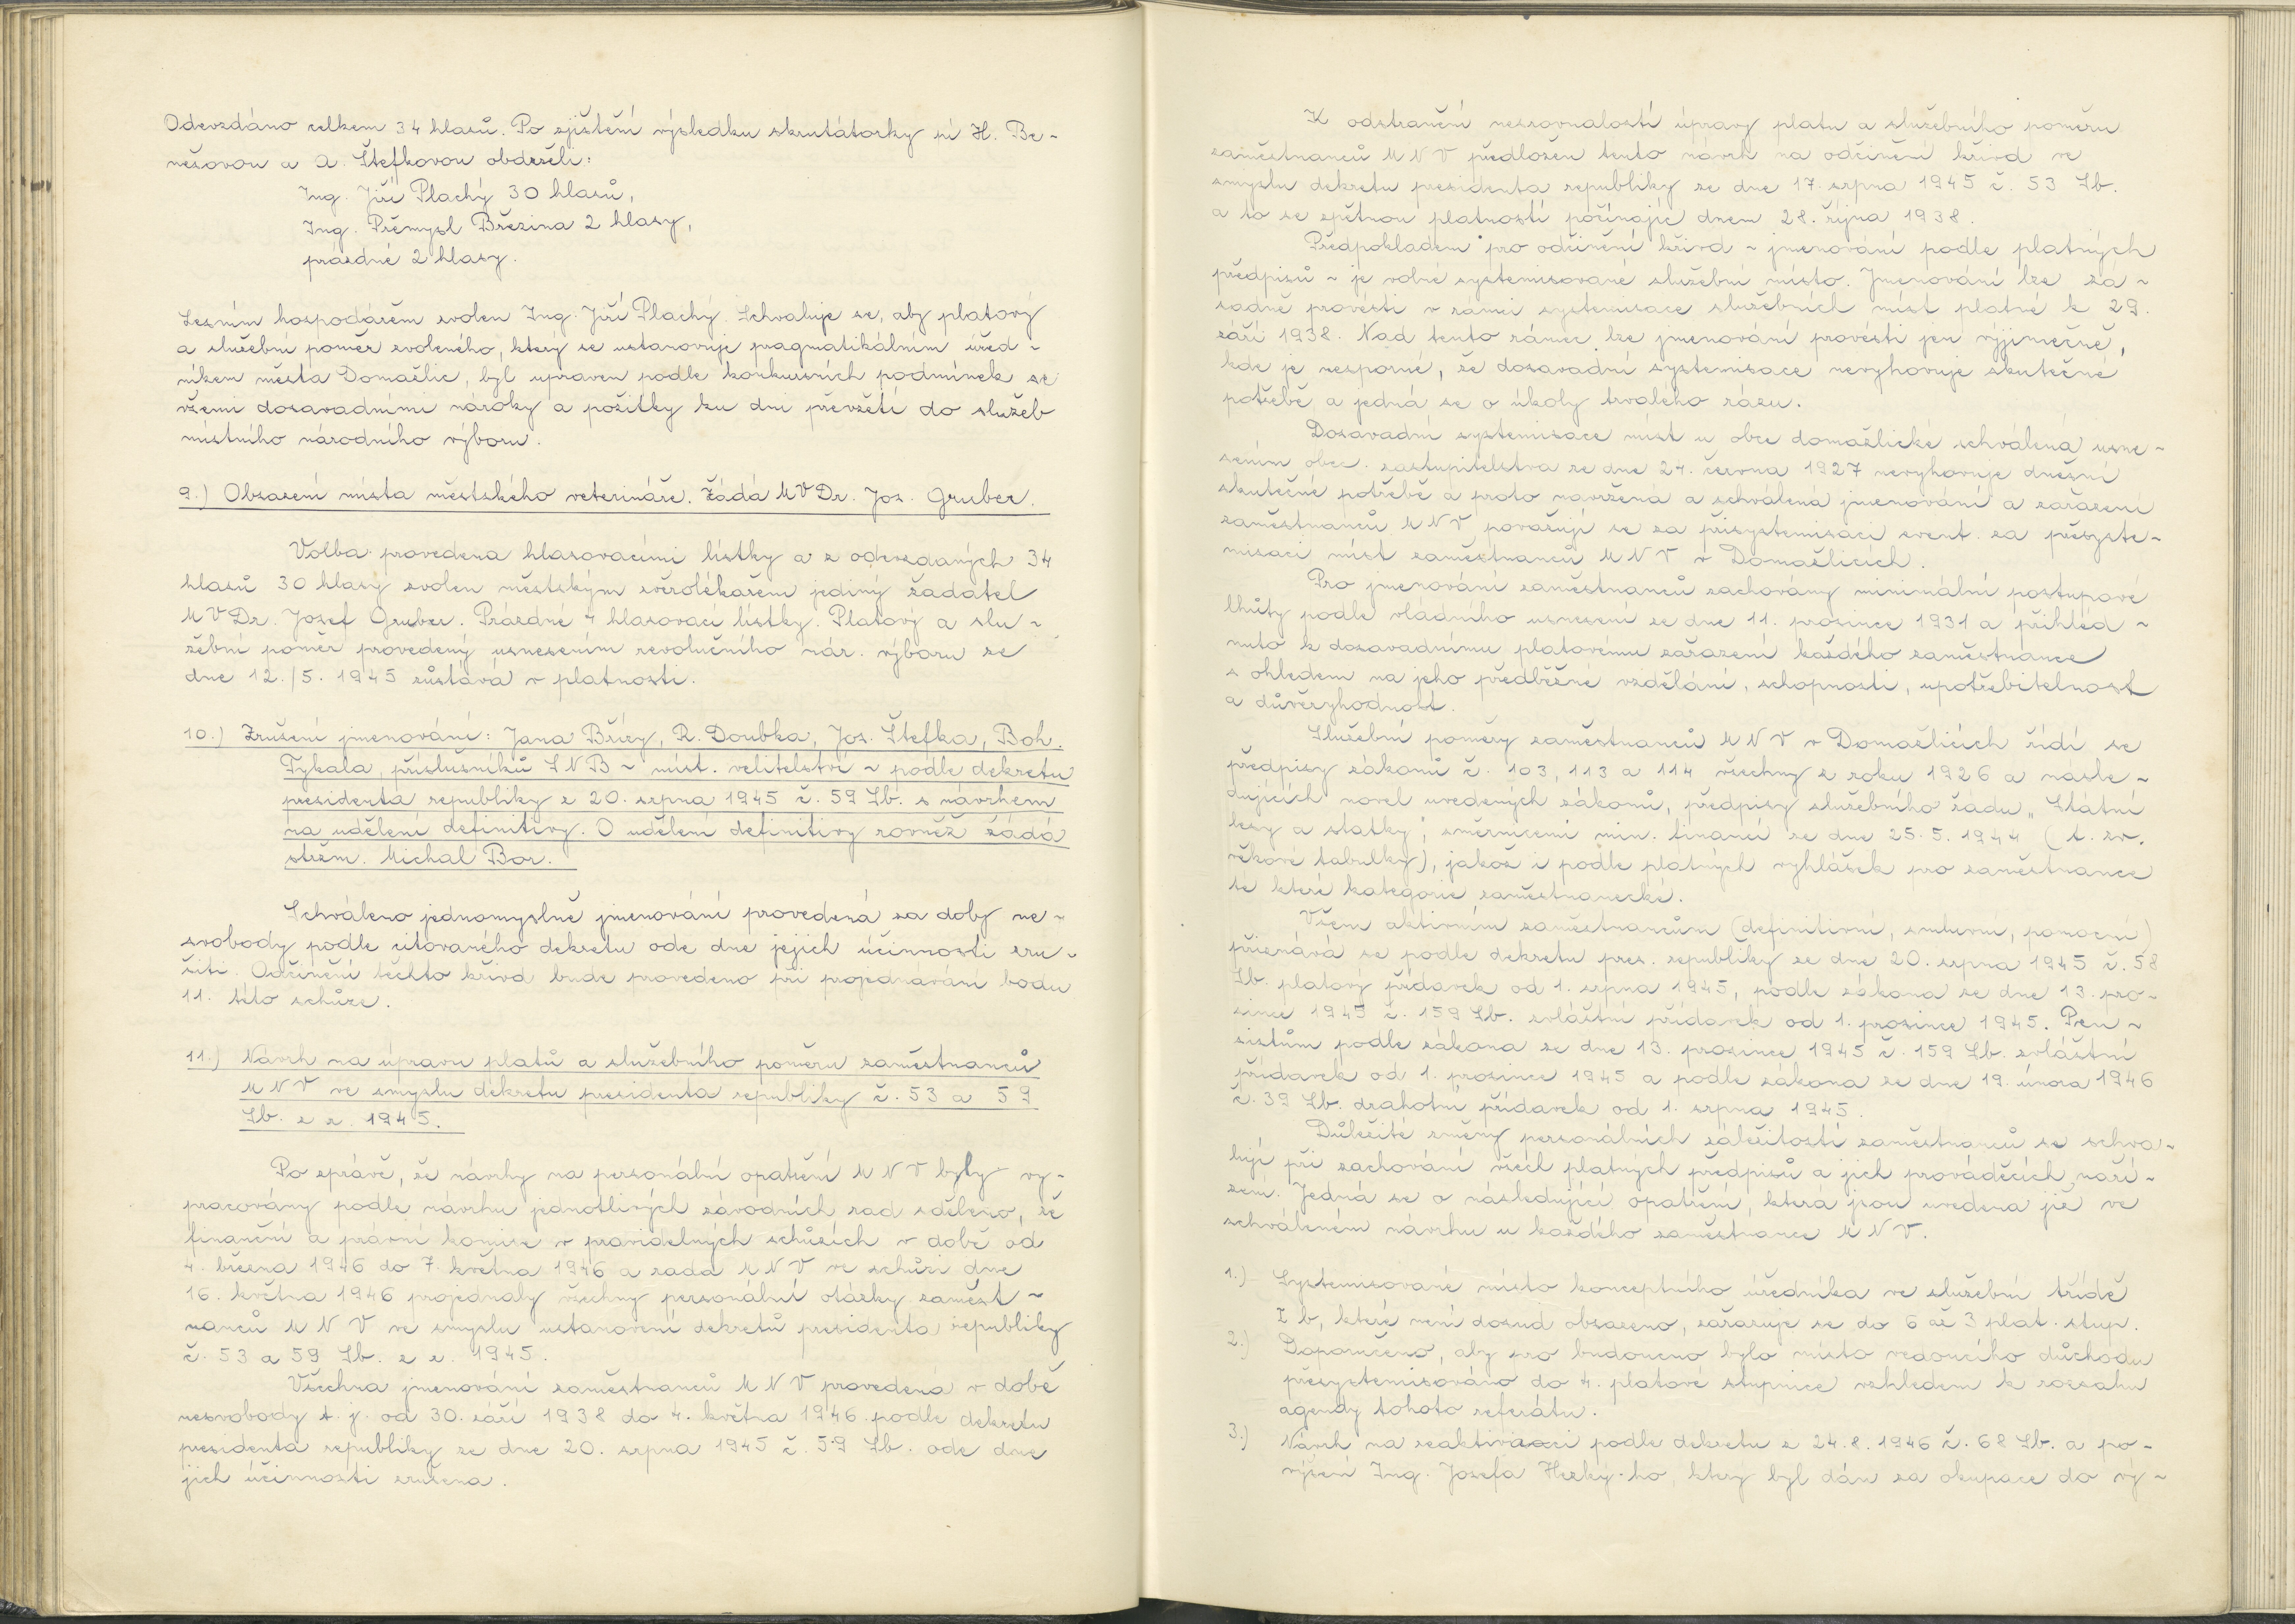 Odevzdáno celkem 34 hlasů. Po zjištění výsledku skrutátorky pí H. Be-
nešovou a A. Štefkovou obdrželi:
Ing. Jiří Plachý 30 hlasů,
Ing. Přemysl Březina 2 hlasy,
prázdné 2 hlasy.
Lesním hospodářem zvolen Ing. Jiří Plachý. Schvaluje se, aby platový
a služební poměr zvoleného, který se ustanovuje pragmatikálním úřed-
níkem města Domažlic, byl upraven podle konkursních podmínek se
všemi dosavadními nároky a požitky ku dni převzetí do služeb
místního národního výboru.
9.) Obsazení místa městského veterináře. Žádá MVDr. Jos. Gruber.
Volba provedena hlasovacími lístky a z odevzdaných 34
hlasů 30 hlasy zvolen městským zvěrolékařem jediný žadatel
MVDr. Josef Gruber. Prázdné 4 hlasovací lístky. Platový a slu-
žební poměr provedený usnesením revolučního nár. výboru ze
dne 12./5. 1945 zůstává v platnosti.
10.) Zrušení jmenování: Jana Břízy, R. Doubka, Jos. Štefka, Boh.
Tykala, příslušníků SNB - míst. velitelství - podle dekretu
presidenta republiky z 20. srpna 1945 č. 59 Sb. s návrhem
na udělení definitivy. O udělení definitivy rovněž žádá
strážm. Michal Bor.
Schváleno jednomyslně jmenování provedená za doby ne-
svobody podle citovaného dekretu ode dne jejich účinnosti zru-
šiti. Odčinění těchto křivd bude provedeno při projednávání bodu
11. této schůze.
11.) Návrh na úpravu platů a služebního poměru zaměstnanců
MNV ve smyslu dekretu presidenta republiky č. 53 a 59
Sb. z r. 1945.
Po zprávě, že návrhy na personální opatření MNV byly vy-
pracovány podle návrhu jednotlivých závodních rad sděleno, že
finanční a právní komise v pravidelných schůzích v době od
4. března 1946 do 7. května 1946 a rada MNV ve schůzi dne
16. května 1946 projednaly všechny personální otázky zaměst-
nanců MNV ve smyslu ustanovení dekretů presidenta republiky
č. 53 a 59 Sb. z r. 1945.
Všechna jmenování zaměstnanců MNV provedená v době
nesvobody t. j. od 30. září 1938 do 4. května 1946 podle dekretu
presidenta republiky ze dne 20. srpna 1945 č. 59 Sb. ode dne
jich účinnosti zrušena.
K odstranění nesrovnalostí úpravy platu a služebního poměru
zaměstnanců MNV předložen tento návrh na odčinění křivd ve
smyslu dekretu presidenta republiky ze dne 17. srpna 1945 č. 53 Sb.
a to se zpětnou platností počínajíc dnem 28. října 1938.
Předpokladem pro odčinění křivd - jmenování podle platných
předpisů - je volné systemisované služební místo. Jmenování lze zá-
sadně provésti v rámci systemisace služebních míst platné k 29.
září 1938. Nad tento rámec lze jmenování provésti jen výjimečně,
kde je nesporné, že dosavadní systemisace nevyhovuje skutečné
potřebě a jedná se o úkoly trvalého rázu.
Dosavadní systemisace míst u obce domažlické schválená usne-
sením obec. zastupitelstva ze dne 24. června 1927 nevyhovuje dnešní
skutečné potřebě a proto navržená a schválená jmenování a zařazení
zaměstnanců MNV považují se za přisystemisaci event. za přesyste-
misaci míst zaměstnanců MNV v Domažlicích.
Pro jmenování zaměstnanců zachovány minimální postupové
lhůty podle vládního usnesení ze dne 11. prosince 1931 a přihléd-
nuto k dosavadnímu platovému zařazení každého zaměstnance
s ohledem na jeho předběžné vzdělání, schopnosti, upotřebitelnost
a důvěryhodnost.
Služební poměry zaměstnanců MNV v Domažlicích řídí se
předpisy zákonů č. 103, 113 a 114 všechny z roku 1926 a násle-
dujících novel uvedených zákonů, předpisy služebního řádu „Státní
lesy a statky", směrnicemi min. financí ze dne 25. 5. 1944 (t. zv.
věkové tabulky), jakož i podle platných vyhlášek pro zaměstnance
té které kategorie zaměstnanecké.
Všem aktivním zaměstnancům (definitivní, smluvní, pomocní)
přiznává se podle dekretu pres. republiky ze dne 20. srpna 1945 č. 58
Sb. platový přídavek od 1. srpna 1945, podle zákona ze dne 13. pro-
since 1945 č. 159 Sb. zvláštní přídavek od 1. prosince 1945. Pen-
sistům podle zákona ze dne 13. prosince 1945 č. 159 Sb. zvláštní
přídavek od 1. prosince 1945 a podle zákona ze dne 19. února 1946
č. 39 Sb. drahotní přídavek od 1. srpna 1945.
Důležité změny personálních záležitostí zaměstnanců se schva-
lují při zachování všech platných předpisů a jich prováděcích naří-
zení. Jedná se o následující opatření, která jsou uvedena již ve
schváleném návrhu u každého zaměstnance MNV.
1.) Systemisované místo konceptního úředníka ve služební třídě
I b, které není dosud obsazeno, zařazuje se do 6 až 3 plat. stup.
2.) Doporučeno, aby pro budoucno bylo místo vedoucího důchodu
přesystemisováno do 4. platové stupnice vzhledem k rozsahu
agendy tohoto referátu.
3.) Návrh na reaktivaci podle dekretu z 24. 8. 1946 č. 68 Sb. a po-
výšení Ing. Josefa Hezký-ho, který byl dán za okupace do vý-